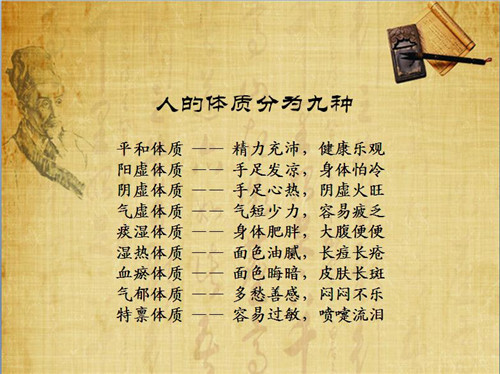 人的体质分为九种
平和体质 —— 精力充沛，健康乐观
阳虚体质 —— 手足发凉，身体怕冷
阴虚体质 —— 手足心热，阴虚火旺
气虚体质 —— 气短少力，容易疲乏
痰湿体质 —— 身体肥胖，大腹便便
湿热体质 —— 面色油腻，长痘长疮
血瘀体质 —— 面色晦暗，皮肤长斑
气郁体质 —— 多愁善感，闷闷不乐
特禀体质 —— 容易过敏，喷嚏流泪